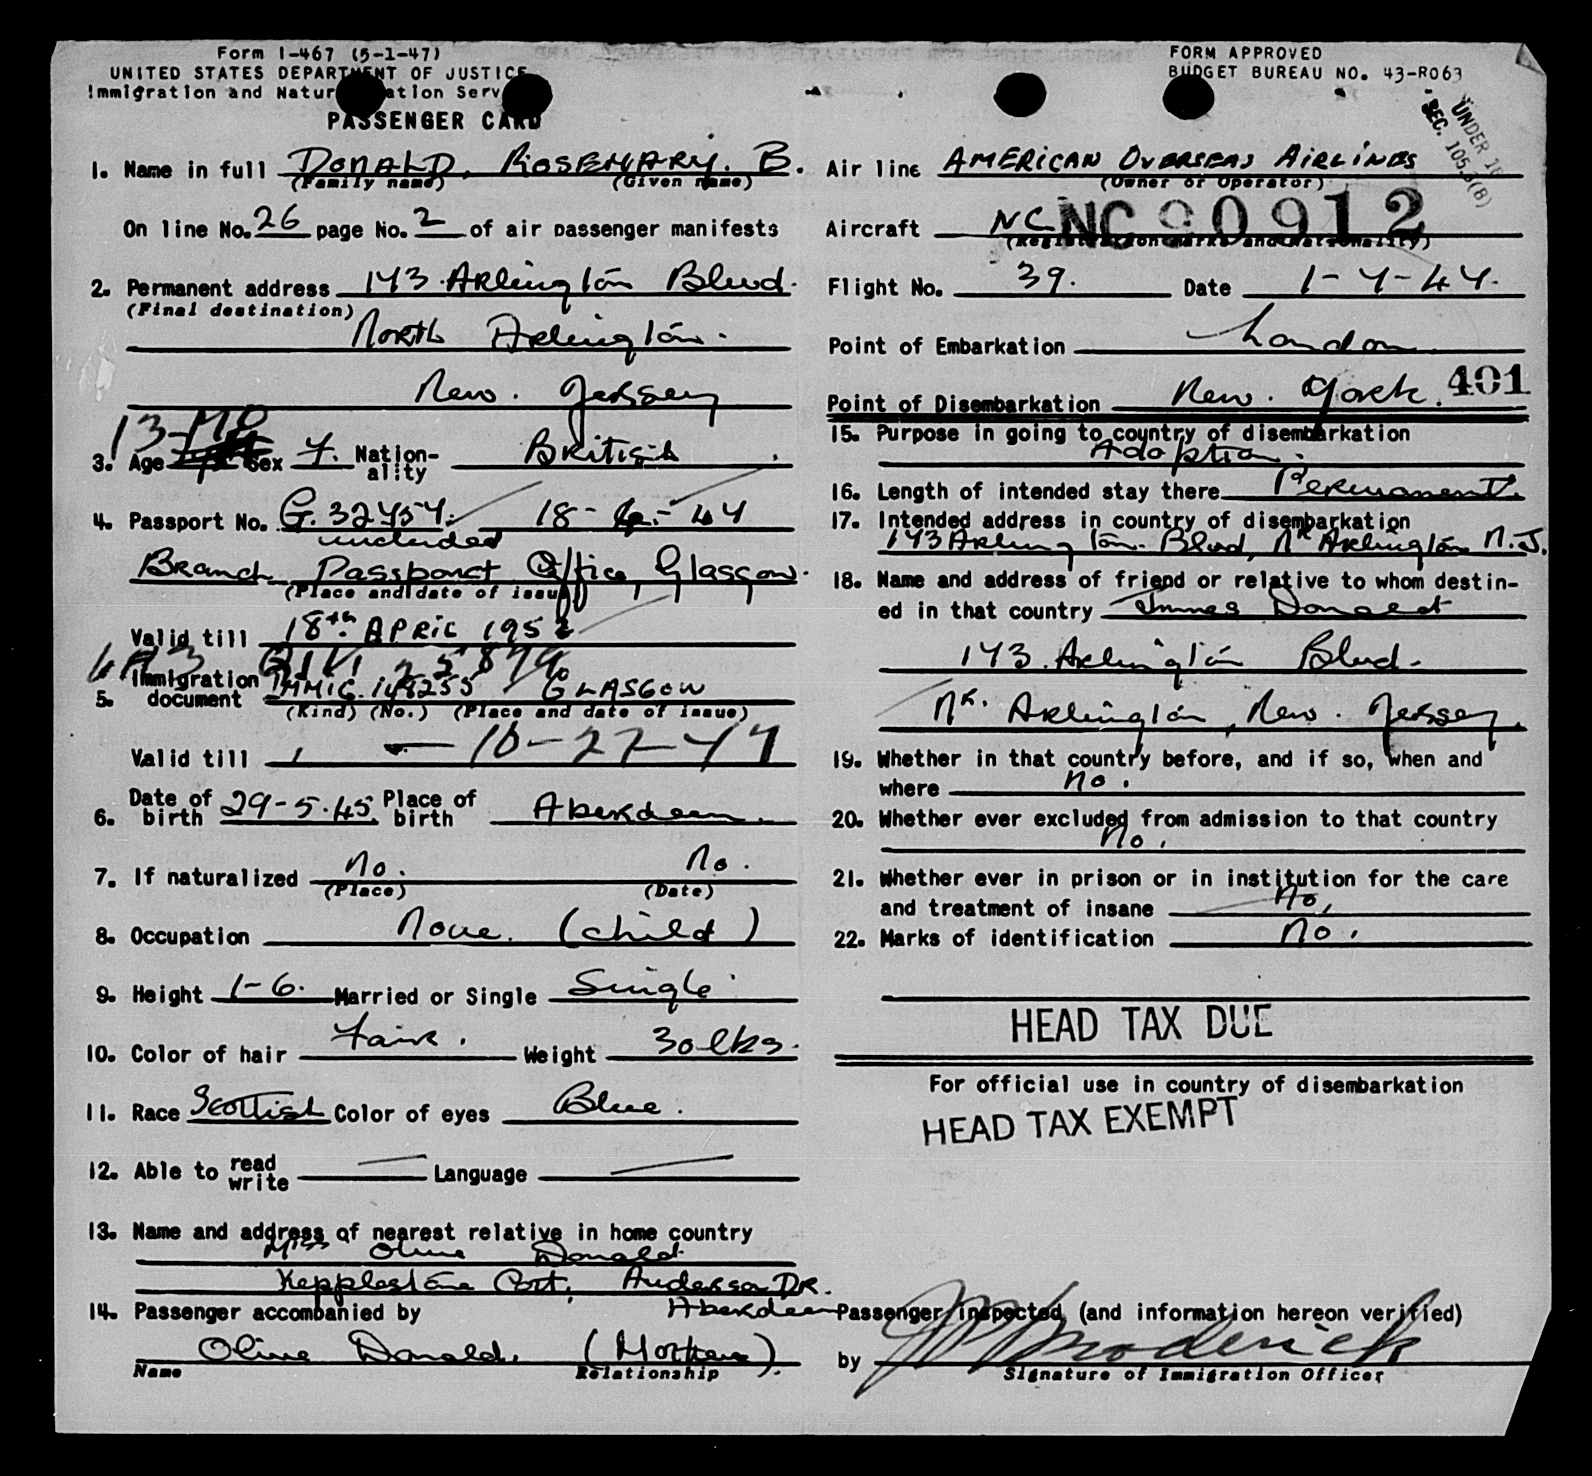 Form I-467 (5-1-47)
UNITED STATES DEPARTMENT OF JUSTICE
Immigration and Naturalization Serv
PASSENGER CARD
1. Name in full DONALD, ROSEMARY. B.
(Family name) (Given name)
On line No. 26 page No. 2 of air passenger manifests
2. Permanent address 143 Arlington Blvd.
(Final destination)
North Arlington.
New. Jersey
13 MO
3. Age Sex F. Nation-ality British
4. Passport No. G. 32454. 18-4-47
included
Branch Passport Office, Glasgow.
(Place and date of issue)
Valid till 18th APRIL 1952
5. Immigration document IMMIG. GLASGOW
(Kind) (No.) (Place and date of issue)
Valid till 10-27-47
6. Date of birth 29-5-45 Place of birth Aberdeen.
7. If naturalized No. No.
(Place) (Date)
8. Occupation None. (child)
9. Height 1-6. Married or Single Single
10. Color of hair Fair. Weight 30 lbs.
11. Race Scottish Color of eyes Blue.
12. Able to read write Language
13. Name and address of nearest relative in home country
Miss Olive Donald
Kepplestone Cott, Anderson DR.
Aberdeen
14. Passenger accompanied by
Olive Donald. (Mother).
Name Relationship
FORM APPROVED
BUDGET BUREAU NO. 43-R063
UNDER 16
SEC. 105.3(B)
Air line AMERICAN OVERSEAS AIRLINES
(Owner or Operator)
Aircraft NC NC 90912
(Registration marks and nationality)
Flight No. 39. Date 1-7-47.
Point of Embarkation London.
Point of Disembarkation New. York. 401
15. Purpose in going to country of disembarkation
Adoption.
16. Length of intended stay there Permanent.
17. Intended address in country of disembarkation
143 Arlington Blvd, Nth Arlington N.J.
18. Name and address of friend or relative to whom destin-
ed in that country James Donald
143 Arlington Blvd.
Nth. Arlington, New. Jersey.
19. Whether in that country before, and if so, when and
where No.
20. Whether ever excluded from admission to that country
No.
21. Whether ever in prison or in institution for the care
and treatment of insane No.
22. Marks of identification No.
HEAD TAX DUE
For official use in country of disembarkation
HEAD TAX EXEMPT
Passenger inspected (and information hereon verified)
by Broderick
Signature of Immigration Officer